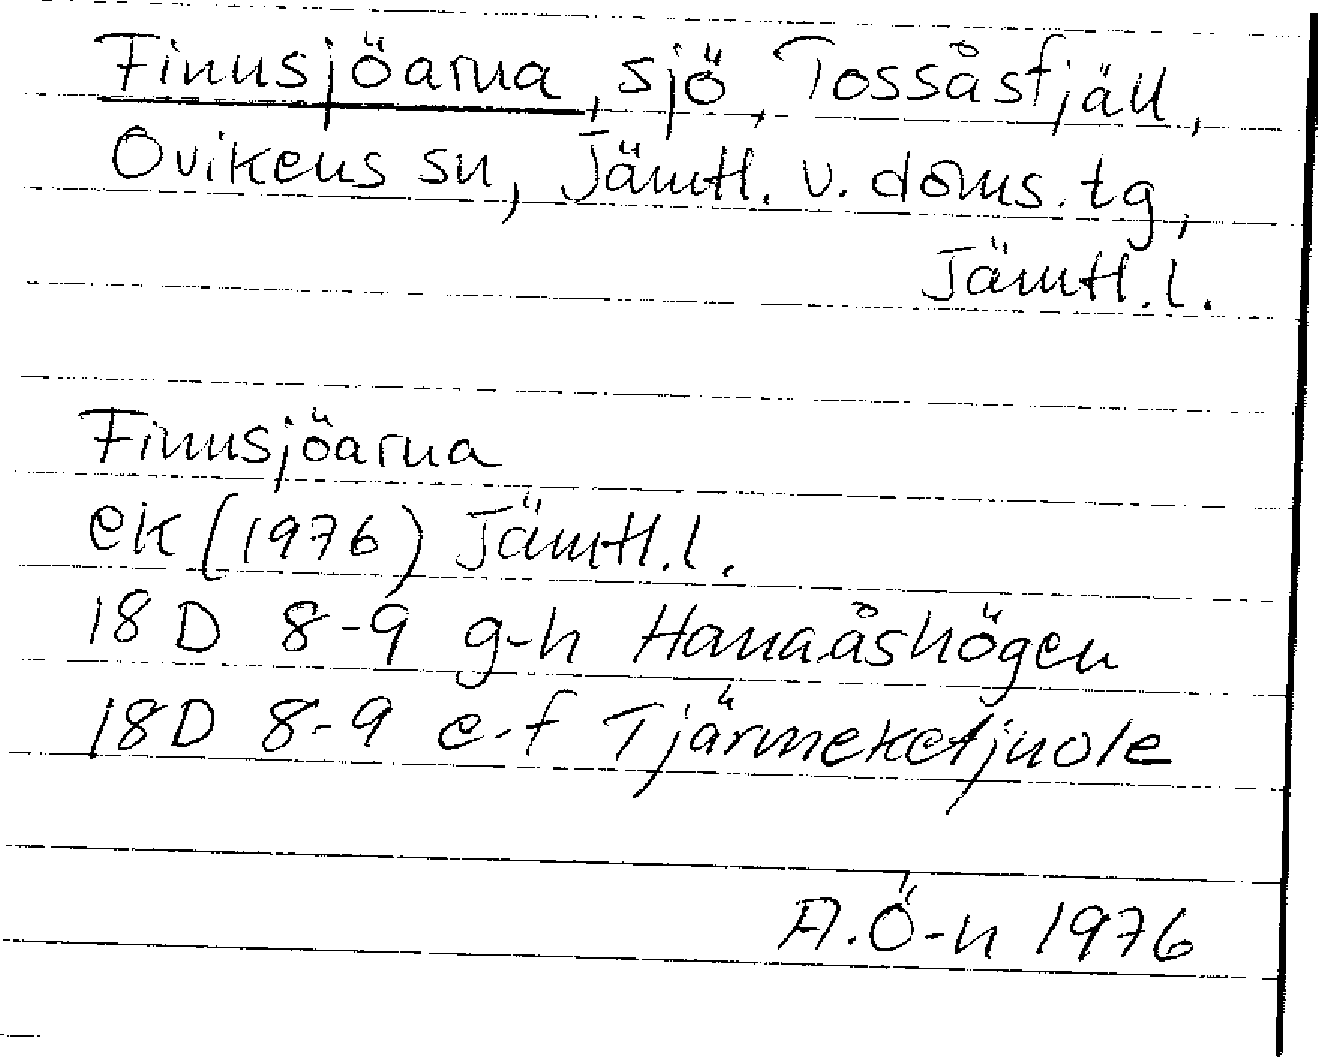 Finnsjöarna, sjö, Tossåsfjäll,
Ovikens sn, Jämtl. v. doms. tg,
Jämtl. l.
Finnsjöarna
ek (1976) Jämtl. l.
18 D 8-9 g-h Hanaåshögen
18 D 8-9 e-f Tjärmeketjuole
A. Ö-n 1976